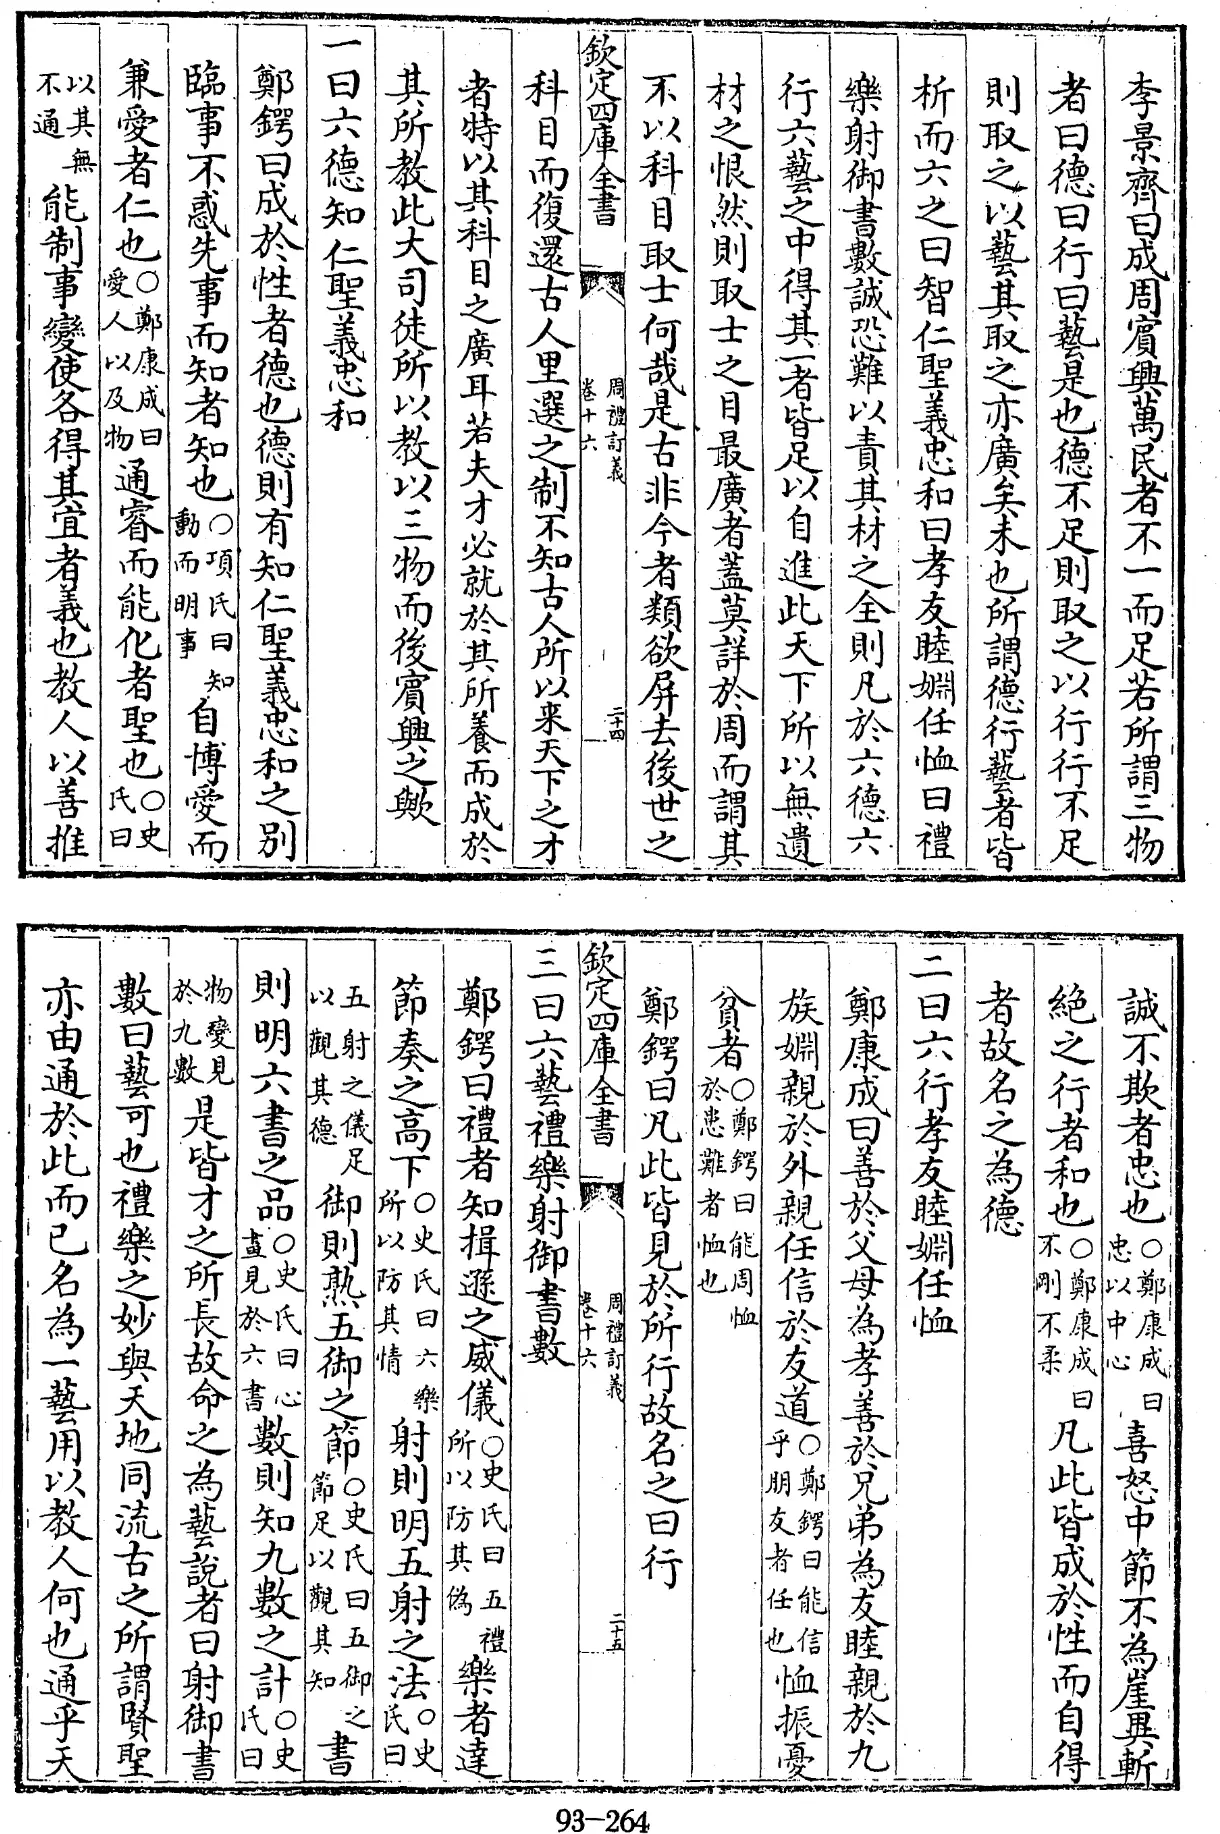 李景齊曰成周賓興萬民者不一而足若所謂三物
者曰德曰行曰藝是也德不足則取之以行行不足
則取之以藝其取之亦廣矣未也所謂德行藝者皆
析而六之曰智仁聖義忠和曰孝友睦婣任恤曰禮
樂射御書數誠恐難以責其材之全則凡於六德六
行六藝之中得其一者皆足以自進此天下所以無遺
材之恨然則取士之目最廣者蓋莫詳於周而謂其
不以科目取士何哉是古非今者類欲屏去後世之
欽定四庫全書 周禮訂義 卷十六 二十四
科目而復還古人里選之制不知古人所以来天下之才
者特以其科目之廣耳若夫才必就於其所養而成於
其所教此大司徒所以教以三物而後賓興之歟
一曰六德知仁聖義忠和
鄭鍔曰成於性者德也德則有知仁聖義忠和之別
臨事不惑先事而知者知也○項氏曰知動而明事自博愛而
兼愛者仁也○鄭康成曰愛人以及物通睿而能化者聖也○史氏曰
以其無不通能制事變使各得其宜者義也教人以善推
誠不欺者忠也○鄭康成曰忠以中心喜怒中節不為崖異斬
絶之行者和也○鄭康成曰不剛不柔凡此皆成於性而自得
者故名之為德
二曰六行孝友睦婣任恤
鄭康成曰善於父母為孝善於兄弟為友睦親於九
族婣親於外親任信於友道○鄭鍔曰能信乎朋友者任也恤振憂
貧者○鄭鍔曰能周恤於患難者恤也
鄭鍔曰凡此皆見於所行故名之曰行
欽定四庫全書 周禮訂義 卷十六 二十五
三曰六藝禮樂射御書數
鄭鍔曰禮者知揖遜之威儀○史氏曰五禮所以防其偽樂者達
節奏之高下○史氏曰六樂所以防其情射則明五射之法○史氏曰
五射之儀足以觀其德御則熟五御之節○史氏曰五御之節足以觀其知書
則明六書之品○史氏曰心畫見於六書數則知九數之計○史氏曰
物變見於九數是皆才之所長故命之為藝說者曰射御書
數曰藝可也禮樂之妙與天地同流古之所謂賢聖
亦由通於此而已名為一藝用以教人何也通乎天
93-264